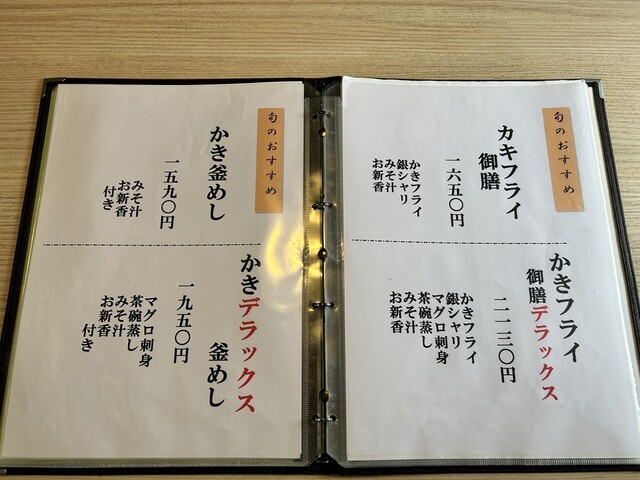 旬のおすすめ
カキフライ
御膳
一六五〇円
かきフライ
銀シャリ
みそ汁
お新香
かきフライ
御膳デラックス
二一三〇円
かきフライ
銀シャリ
マグロ刺身
茶碗蒸し
みそ汁
お新香
旬のおすすめ
かき釜めし
一五九〇円
みそ汁
お新香
付き
かきデラックス
釜めし
一九五〇円
マグロ刺身
茶碗蒸し
みそ汁
お新香
付き